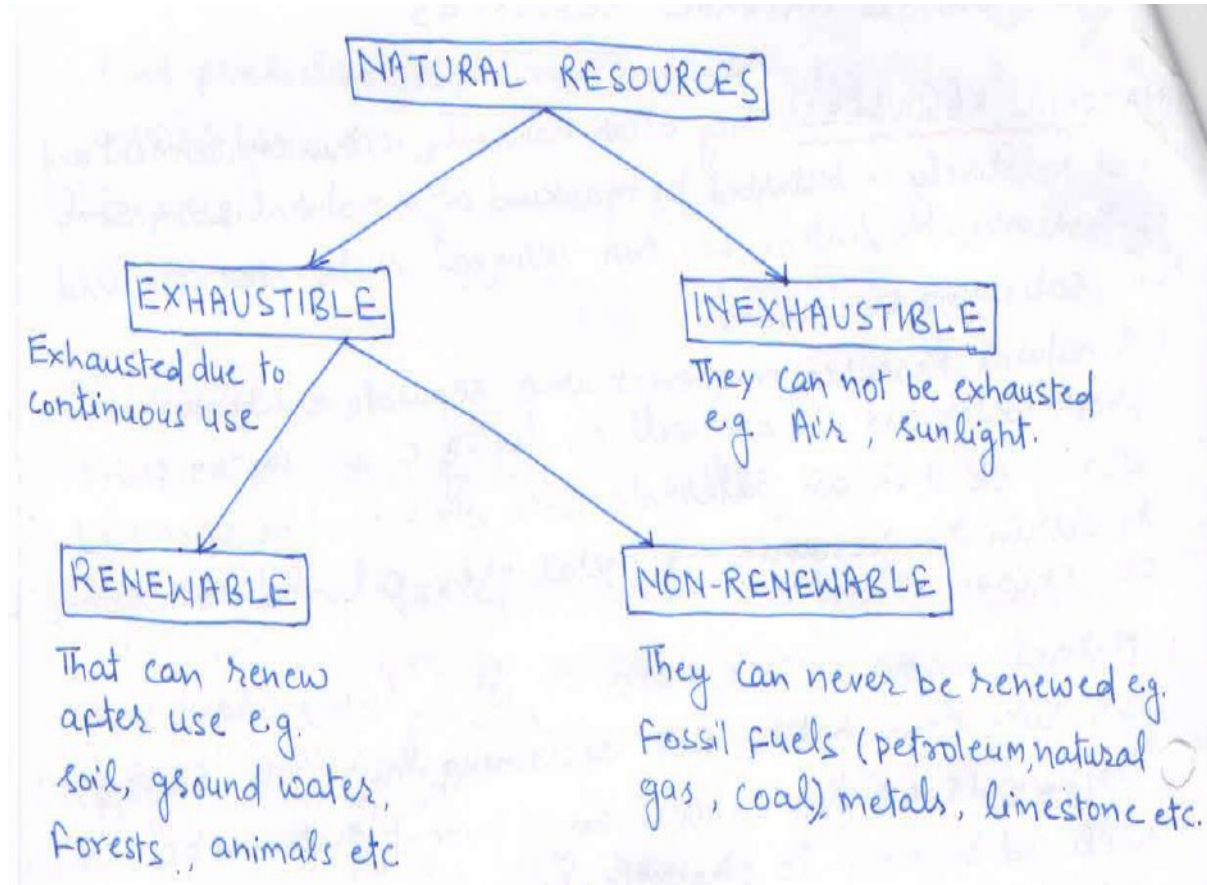 NATURAL RESOURCES
EXHAUSTIBLE
INEXHAUSTIBLE
Exhausted due to
continuous use
They can not be exhausted
e.g. Air, sunlight.
RENEWABLE
NON-RENEWABLE
That can renew
after use e.g.
soil, ground water,
Forests., animals etc
They can never be renewed e.g.
Fossil fuels (petroleum, natural
gas, coal), metals, limestone etc.